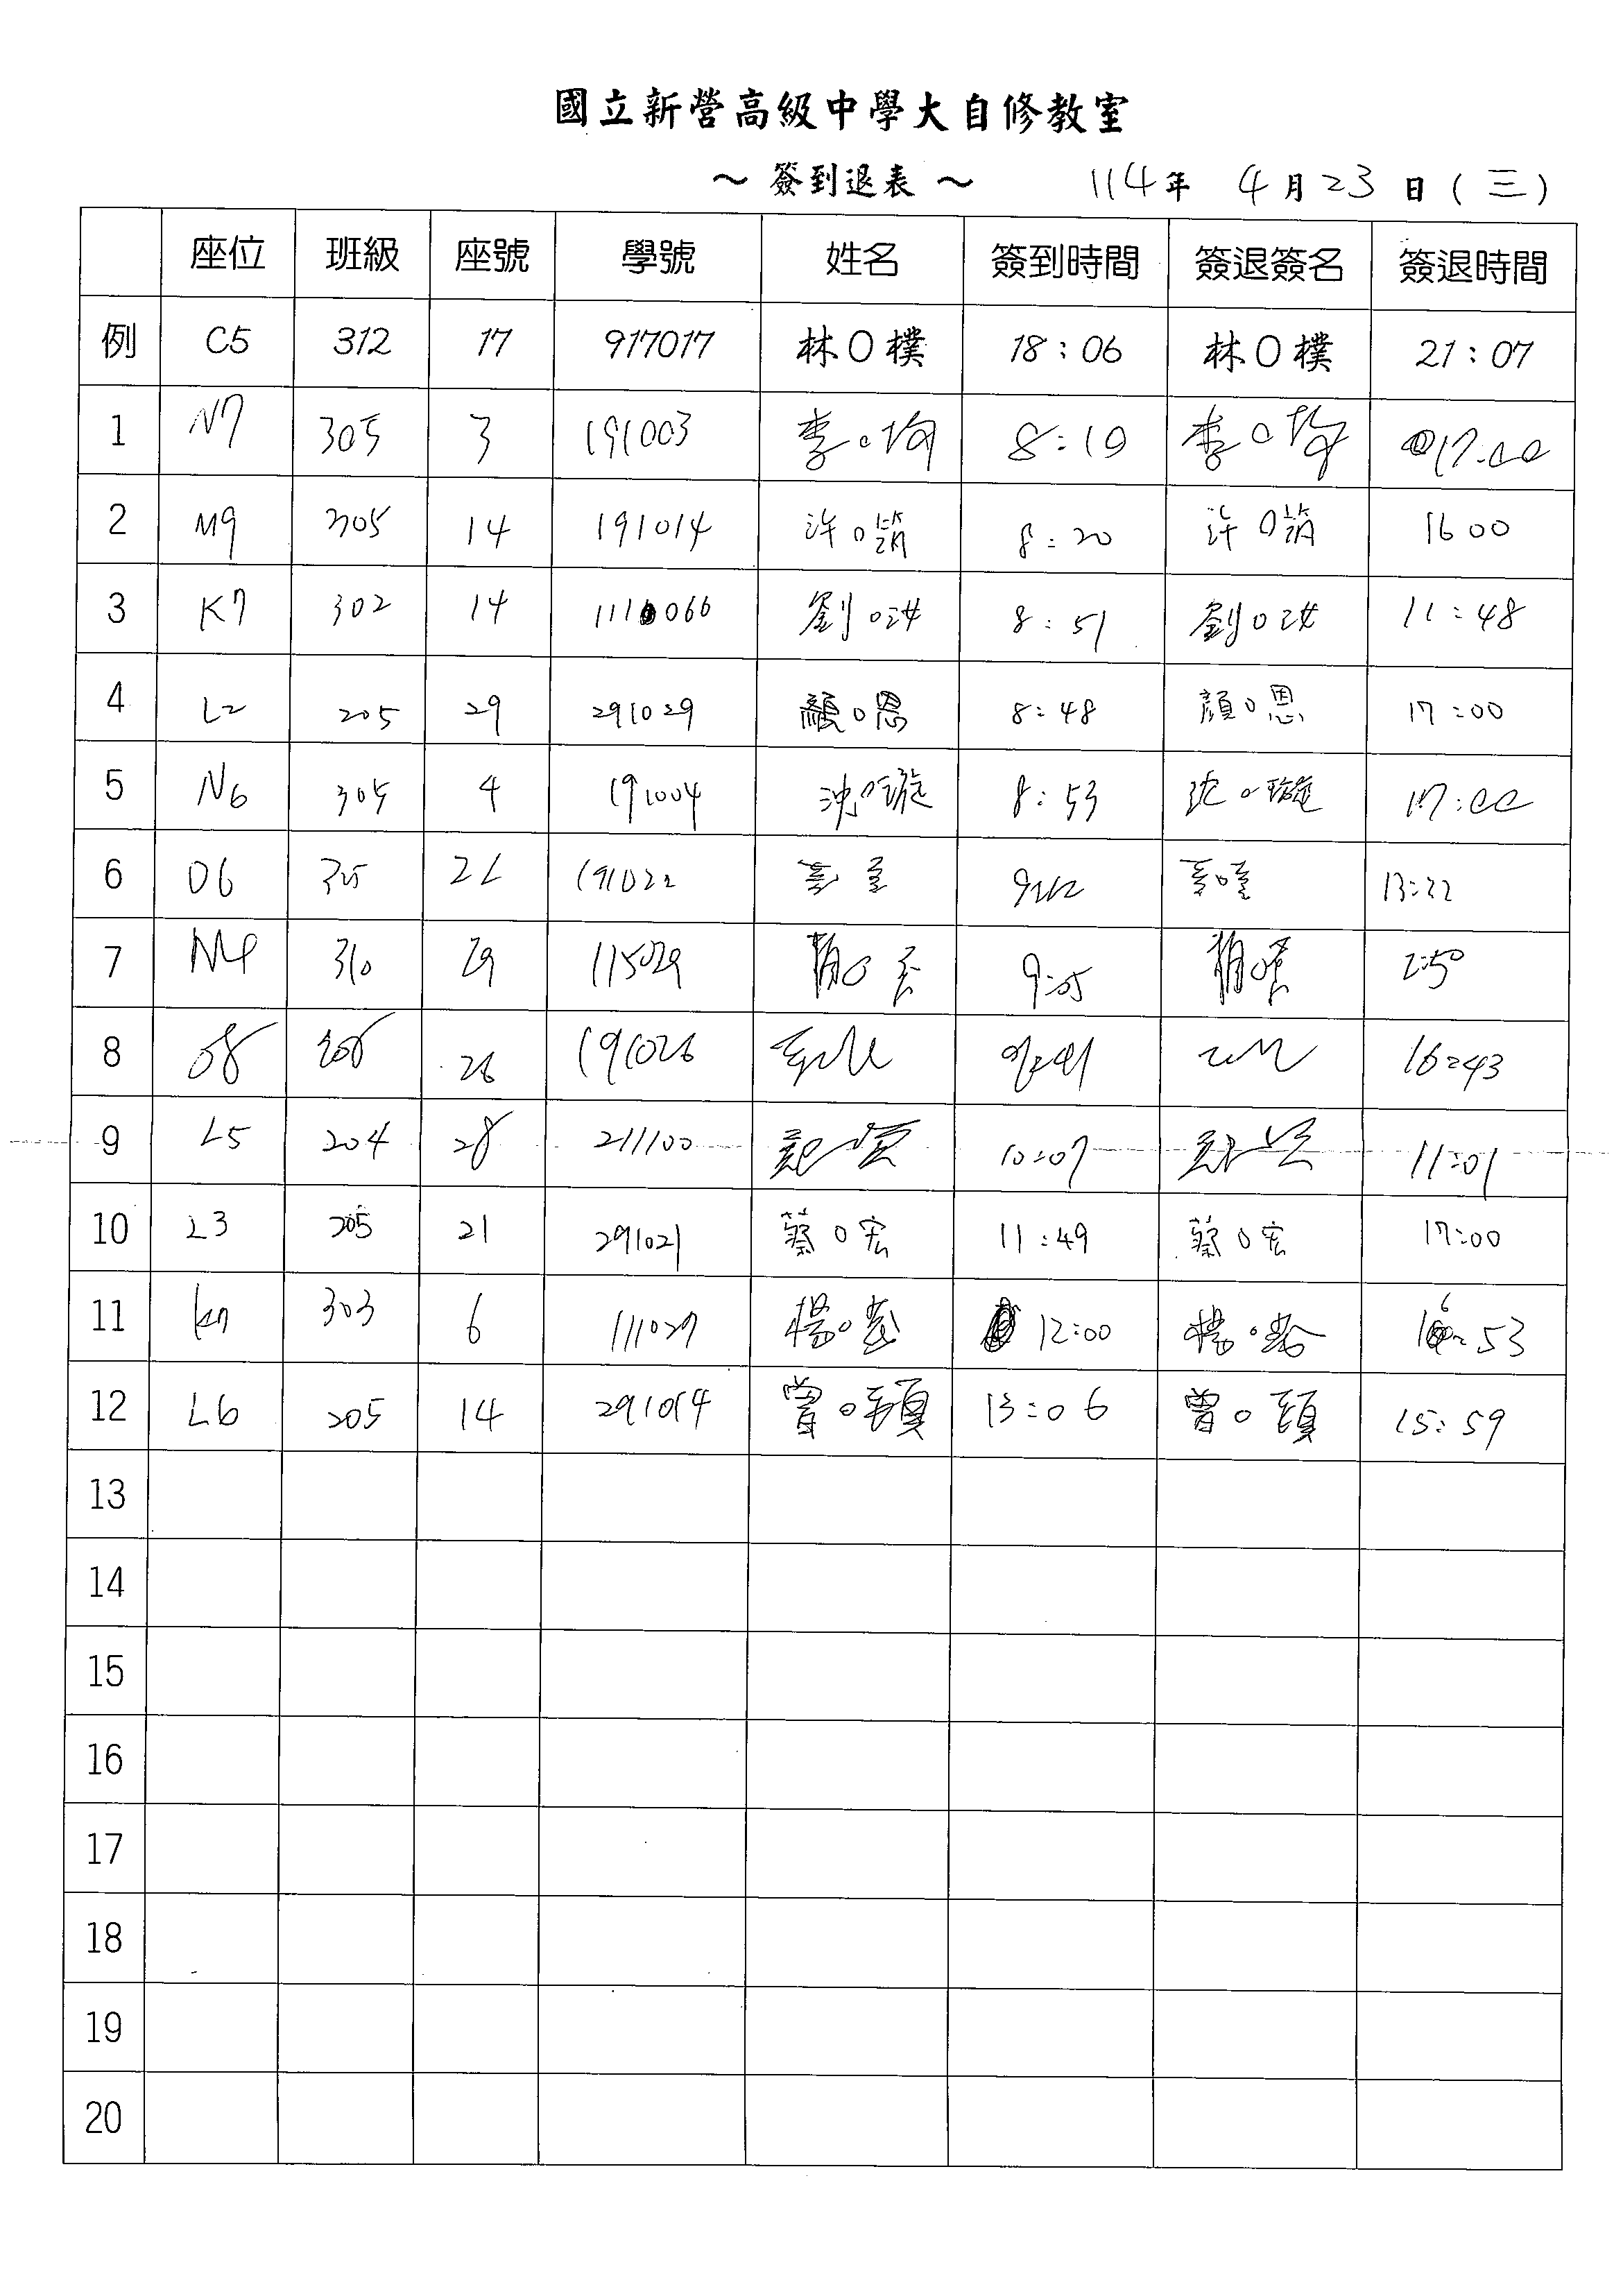 國立新營高級中學大自修教室
～ 簽到退表 ～ 114年 4月23日(三)
座位 班級 座號 學號 姓名 簽到時間 簽退簽名 簽退時間
例 C5 312 17 917017 林O樸 18:06 林O樸 21:07
1 N7 305 3 191003 李O 8:19 李O 17:00
2 M9 305 14 191014 許O筑 8:20 許O筑 16 00
3 K7 302 14 111066 劉O 8:51 劉O 11:48
4 L2 205 29 291029 顏O恩 8:48 顏O恩 17:00
5 N6 305 4 191004 沈O璇 8:53 沈O璇 17:00
6 O6 305 22 191022 13:22
7 N4 310 29 115029 9:05 2:50
8 O8 305 26 191026 16:43
9 L5 204 28 211100 10:07 11:01
10 L3 205 21 291021 蔡O宏 11:49 蔡O宏 17:00
11 K7 303 6 111027 楊O 12:00 楊O 16:53
12 L6 205 14 291014 曾O頤 13:06 曾O頤 15:59
13
14
15
16
17
18
19
20